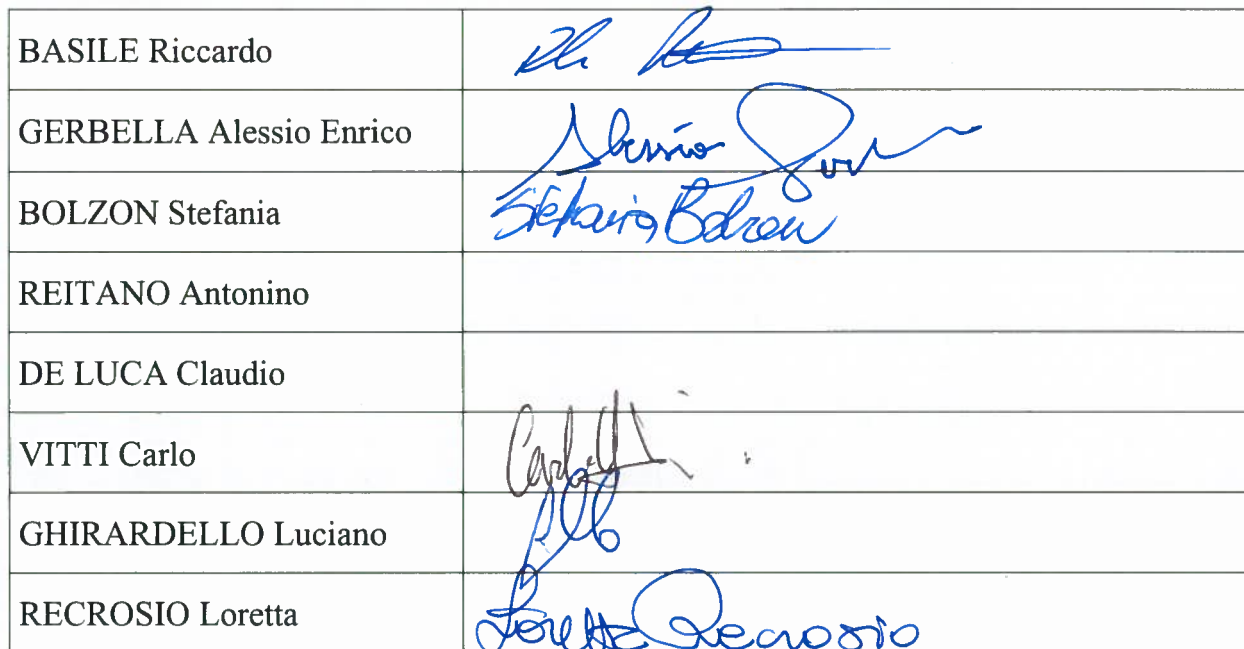 BASILE Riccardo
GERBELLA Alessio Enrico Alessio
BOLZON Stefania Stefania Bolzon
REITANO Antonino
DE LUCA Claudio
VITTI Carlo Carlo
GHIRARDELLO Luciano
RECROSIO Loretta Loretta Recrosio